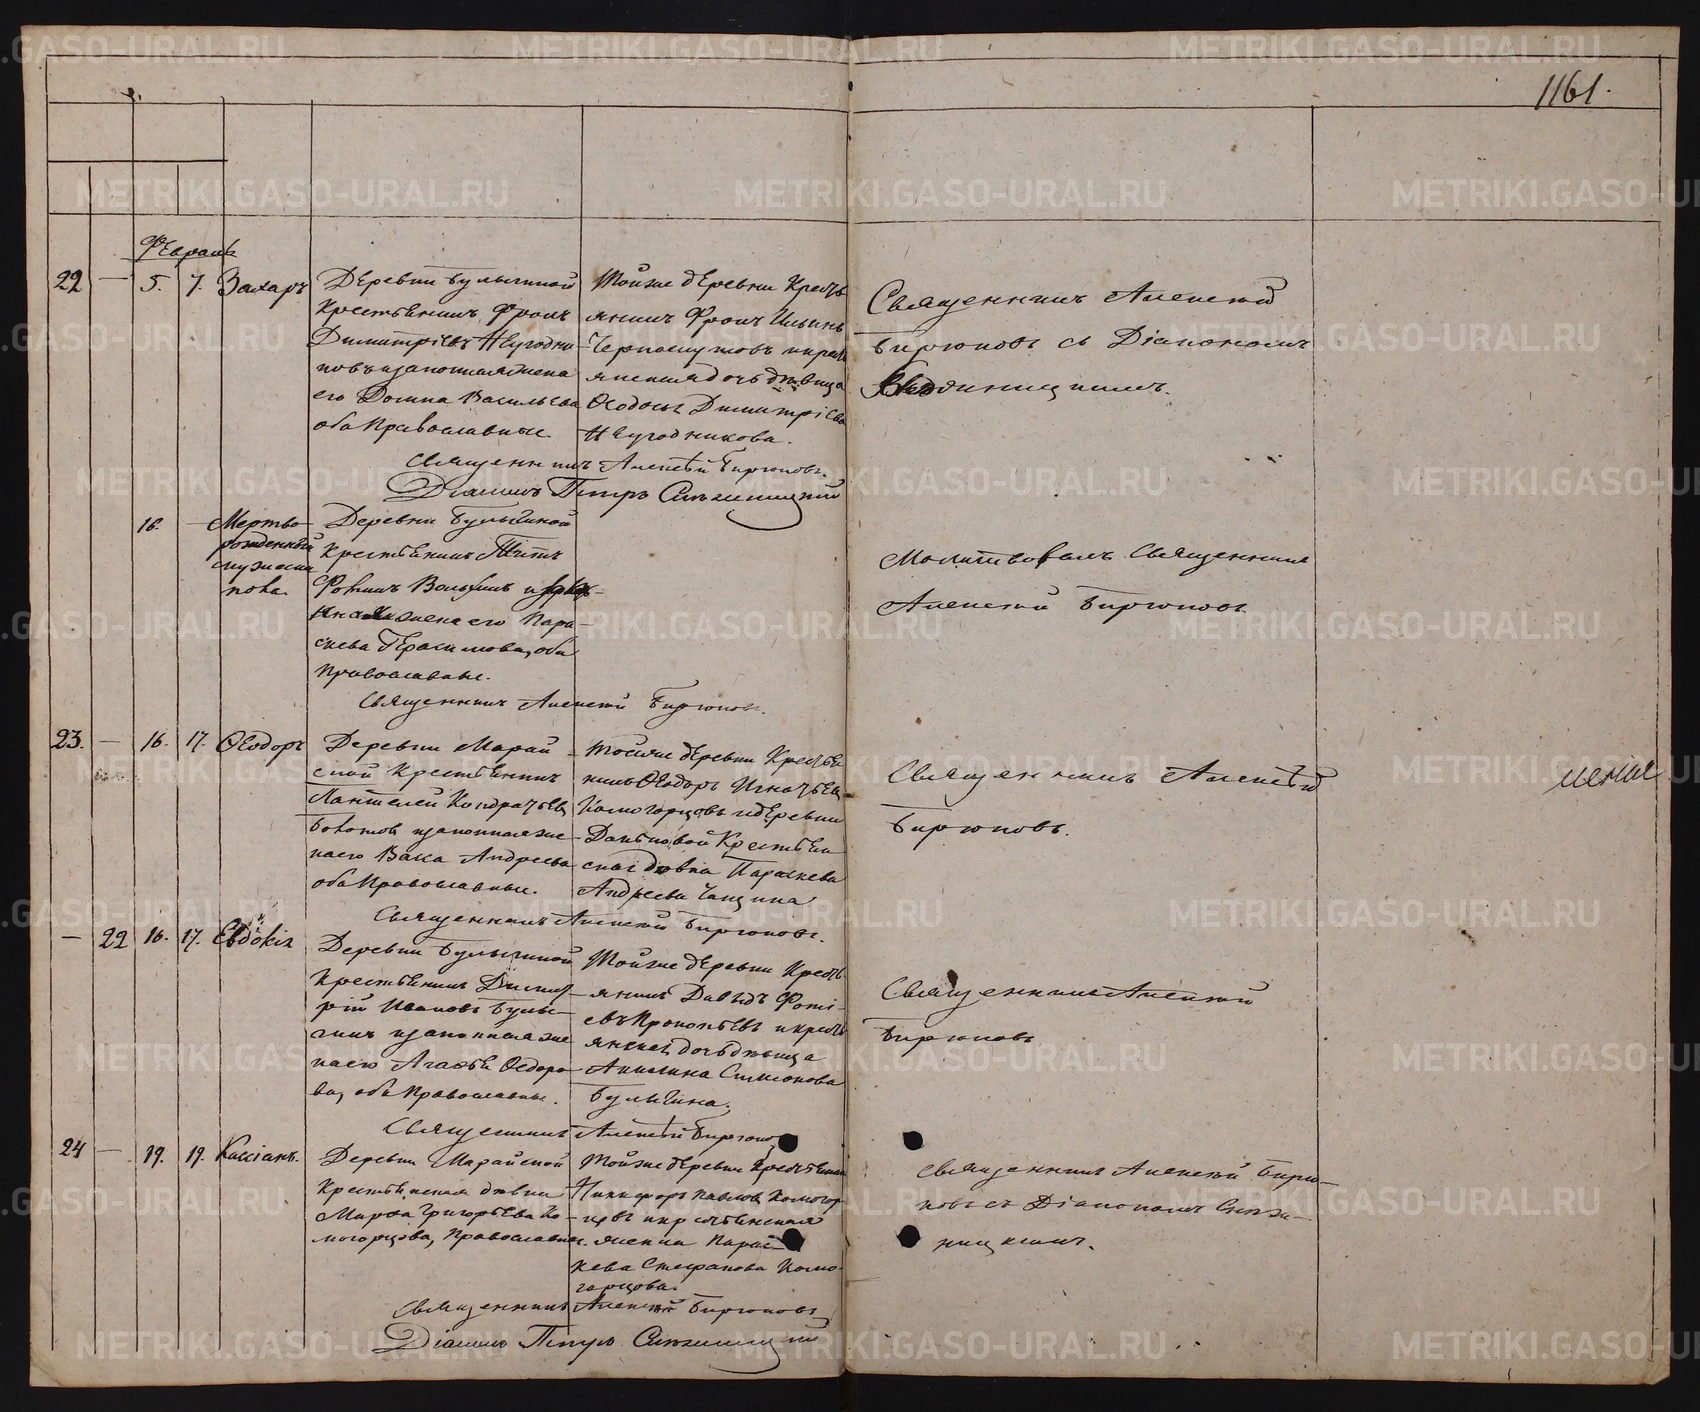 1161.
Февраль
22 — 5. 7. Захаръ
Деревни Булыгиной
Крестьянинъ Фролъ
Димитріевъ Неугодни-
ковъ и законная жена
его Домна Васильева
оба Православные.
Тойже деревни Кресть-
янинъ Фролъ Ильинъ
и кресть-
янская дочь дѣвица
Ѳеодосья Димитріева
Неугодникова.
Священникъ Алексѣй
Бирюковъ съ Діакономъ
Священникъ Алексѣй Бирюковъ.
Діаконъ Петръ
16. — Мертво-
рожденный
мужеска
пола.
Деревни Булыгиной
Крестьянинъ Титъ
жена его Пара-
скева Герасимова, оба
Православные.
Молитвовалъ Священникъ
Алексѣй Бирюковъ.
Священникъ Алексѣй Бирюковъ.
23. — 16. 17. Ѳеодоръ
Деревни Марай-
ской Крестьянинъ
Пантелей Кондратьевъ
и законная же-
на его Васса Андреева
оба Православные.
Тойже деревни Крестья-
нинъ Ѳеодоръ Игнатьевъ
Комогорцовъ и деревни
Крестьян-
ская дѣвка Параскева
Андреева
Священникъ Алексѣй
Бирюковъ.
Священникъ Алексѣй Бирюковъ.
— 22 16. 17. Евдокія
Деревни Булыгиной
Крестьянинъ Димит-
рій Ивановъ Булы-
гинъ и законная же-
на его Агаѳья Ѳедоро-
ва, оба Православные.
Тойже деревни Кресть-
янинъ Давыдъ Фоті-
евъ Прокопьевъ и кресть-
янская дочь дѣвица
Акилина Симеонова
Булыгина.
Священникъ Алексѣй
Бирюковъ
Священникъ Алексѣй Бирюковъ
24 — 19. 19. Кассіанъ.
Деревни Марайской
Крестьянская дѣвка
Марѳа Григорьева Ко-
могорцова, Православная.
Тойже деревни Крестьянинъ
Никифоръ Павловъ Комогор-
цовъ и крестьянская
женка Парас-
кева Стефанова Комо-
горцова.
Священникъ Алексѣй Бирю-
ковъ съ Діакономъ
Священникъ Алексѣй Бирюковъ
Діаконъ Петръ
METRIKI.GASO-URAL.RU